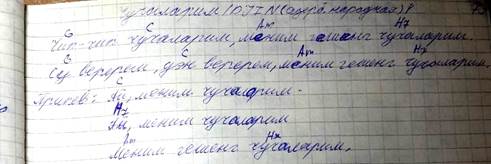 Чучаларим (азерб. народная)
E E Am H7
Чип-чип чучаларим, меним гешенг чучаларим.
E E Am H7
Су веререм, дэн веререм, меним гешенг чучаларим.
E
Припев: Ай, меним чучаларим.
H7
Ай, меним чучаларим
Am H7
Меним гешенг чучаларим.